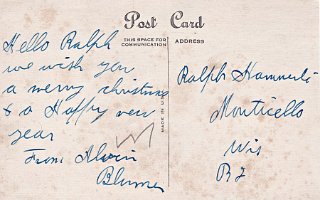 Post Card
THIS SPACE FOR
COMMUNICATION
ADDRESS
Hello Ralph
we wish you
a merry christmas
& a Happy new
year
From Alvin
MADE IN U.S.A.
Ralph
Monticello
Wis